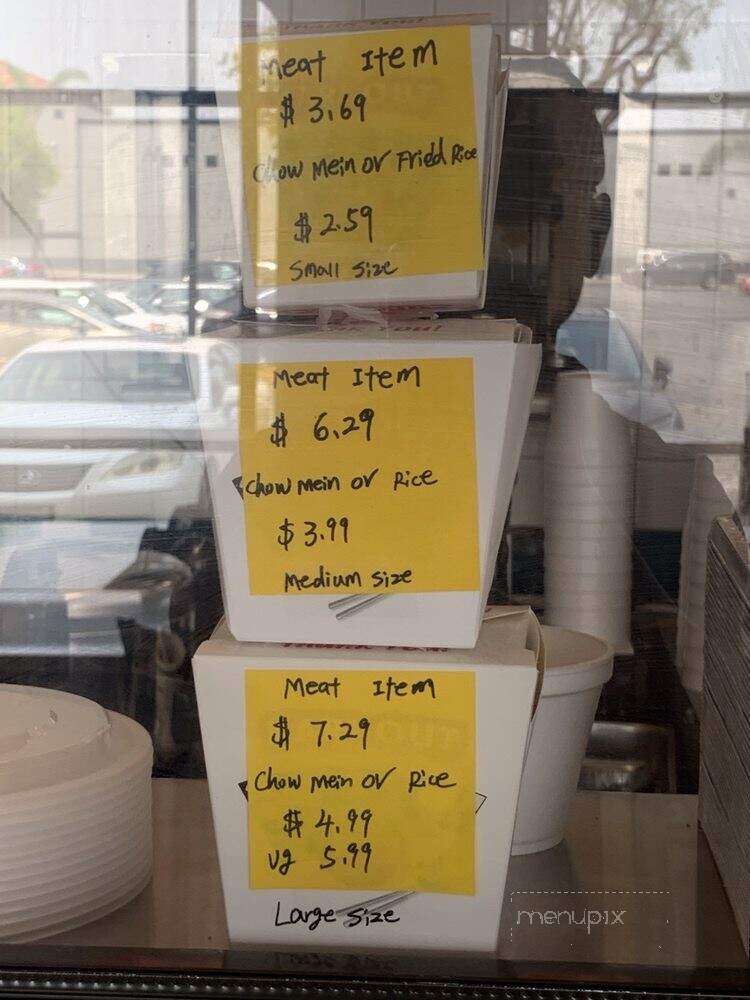 Meat Item
$ 3.69
Chow Mein or Fried Rice
$ 2.59
Small size
Meat Item
$ 6.29
Chow mein or Rice
$ 3.99
Medium size
Meat Item
$ 7.29
Chow mein or Rice
$ 4.99
vg 5.99
Large size
menupix